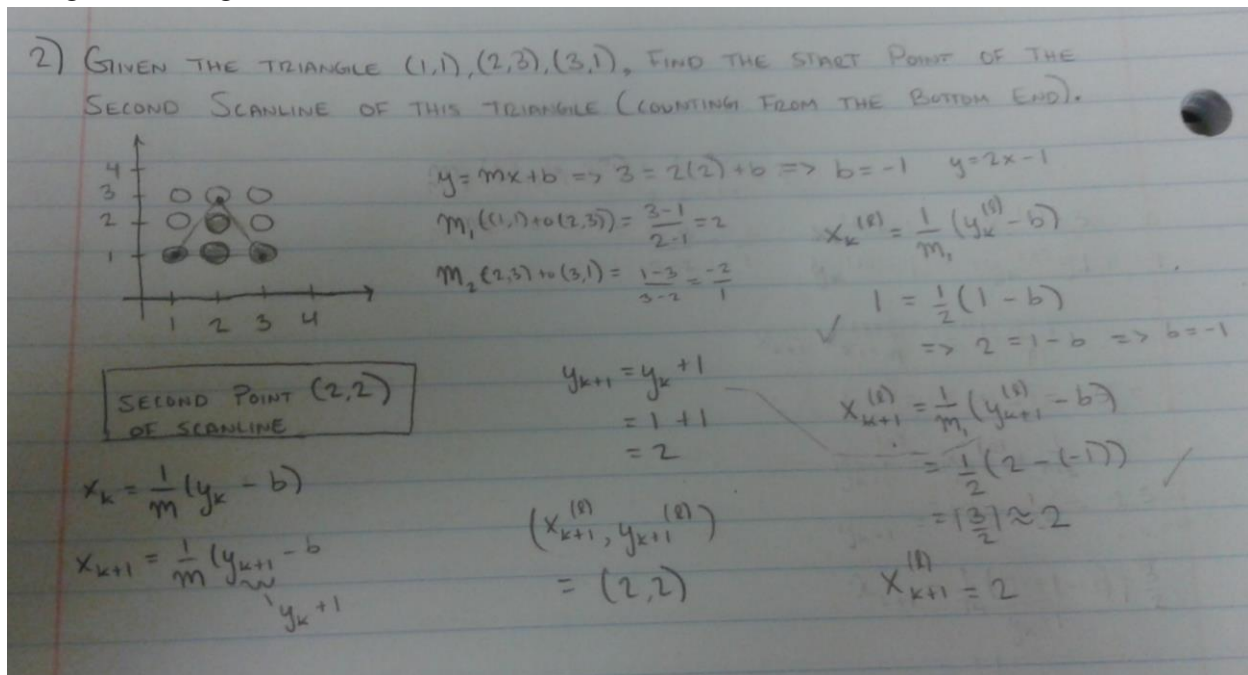 2) GIVEN THE TRIANGLE (1,1), (2,3), (3,1), FIND THE START POINT OF THE
SECOND SCANLINE OF THIS TRIANGLE (COUNTING FROM THE BOTTOM END).
4
3
2
1
1 2 3 4
y = mx + b => 3 = 2(2) + b => b = -1 y = 2x - 1
m₁ ((1,1) to (2,3)) = (3-1)/(2-1) = 2
m₂ (2,3) to (3,1) = (1-3)/(3-2) = -2/1
x_k^(l) = 1/m₁ (y_k^(l) - b)
1 = 1/2 (1 - b)
✓ => 2 = 1 - b => b = -1
SECOND POINT (2,2)
OF SCANLINE
x_k = 1/m (y_k - b)
x_{k+1} = 1/m (y_{k+1} - b
y_k + 1
y_{k+1} = y_k + 1
= 1 + 1
= 2
(x_{k+1}^(l), y_{k+1}^(l))
= (2,2)
x_{k+1}^(l) = 1/m₁ (y_{k+1}^(l) - b)
= 1/2 (2 - (-1))
= |3/2| ≈ 2
x_{k+1}^(l) = 2